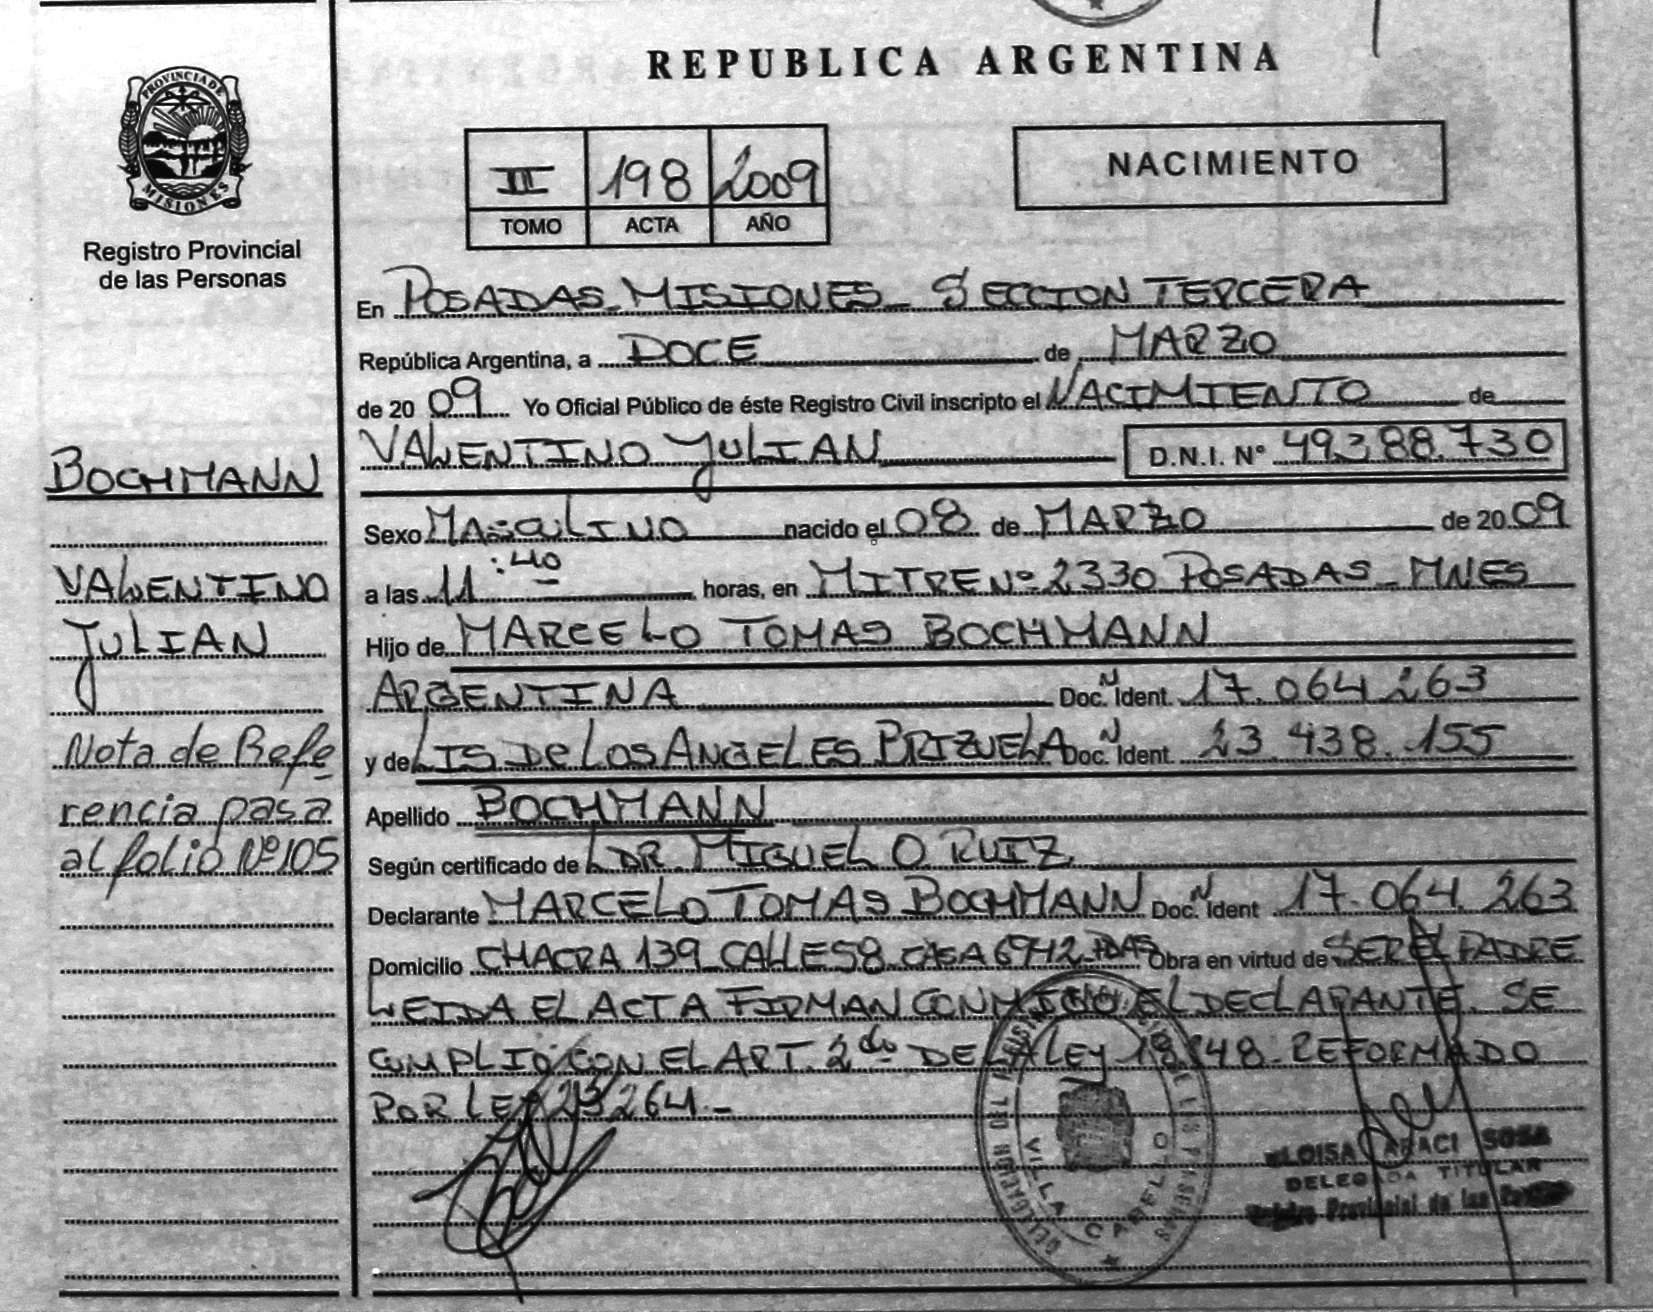 REPUBLICA ARGENTINA
PROVINCIA DE
MISIONES
Registro Provincial
de las Personas
II 198 2009
TOMO ACTA AÑO
NACIMIENTO
En POSADAS MISIONES SECCION TERCERA
República Argentina, a DOCE de MARZO
de 2009 Yo Oficial Público de éste Registro Civil inscripto el NACIMIENTO de
VALENTINO JULIAN D.N.I. Nº 49.388.730
Sexo MASCULINO nacido el 08 de MARZO de 2009
a las 11:40 horas, en MITRE Nº 2330 POSADAS MNES
Hijo de MARCELO TOMAS BOCHMANN
ARGENTINA Doc. N Ident. 17.064.263
y de LIS DE LOS ANGELES BRIZUELA Doc. N Ident. 23.438.155
Apellido BOCHMANN
Según certificado de L DR. MIGUEL O RUIZ
Declarante MARCELO TOMAS BOCHMANN Doc. N Ident 17.064.263
Domicilio CHACRA 139 CALLE 58 CASA 6942 PDAS Obra en virtud de SER EL PADRE
LEIDA EL ACTA FIRMAN CONMIGO EL DECLARANTE. SE
CUMPLIO CON EL ART. 2do DE LA LEY 18248 REFORMADO
POR LEY 23264.-
BOCHMANN
VALENTINO
JULIAN
Nota de Refe
rencia pasa
al folio Nº 105
VILLA CABELLO
SOSA
DELEGADA TITULAR
Provincial de las